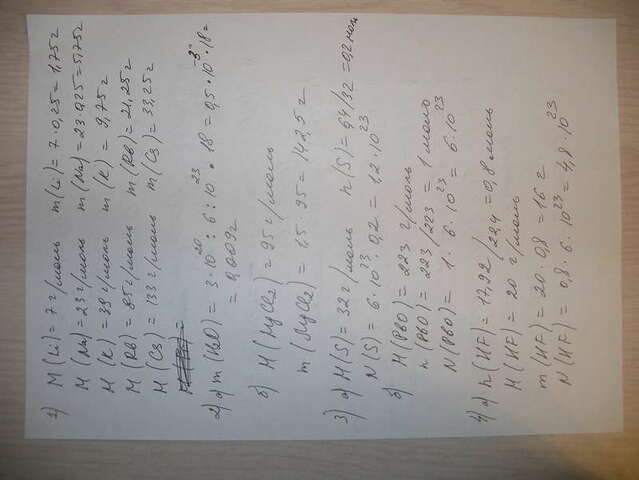 1) M(Li) = 7 г/моль m(Li) = 7·0,25 = 1,75 г
M(Na) = 23 г/моль m(Na) = 23·0,25 = 5,75 г
M(K) = 39 г/моль m(K) = 9,75 г
M(Rb) = 85 г/моль m(Rb) = 21,25 г
M(Cs) = 133 г/моль m(Cs) = 33,25 г
2) а) m(H2O) = 3·10^20 : 6·10^23 · 18 = 0,5·10^-3 · 18 =
= 0,009 г
б) M(MgCl2) = 95 г/моль
m(MgCl2) = 1,5·95 = 142,5 г
3) а) M(S) = 32 г/моль n(S) = 6,4/32 = 0,2 моль
N(S) = 6·10^23 · 0,2 = 1,2·10^23
б) M(PbO) = 223 г/моль
n(PbO) = 223/223 = 1 моль
N(PbO) = 1·6·10^23 = 6·10^23
4) а) n(HF) = 17,92/22,4 = 0,8 моль
M(HF) = 20 г/моль
m(HF) = 20·0,8 = 16 г
N(HF) = 0,8·6·10^23 = 4,8·10^23